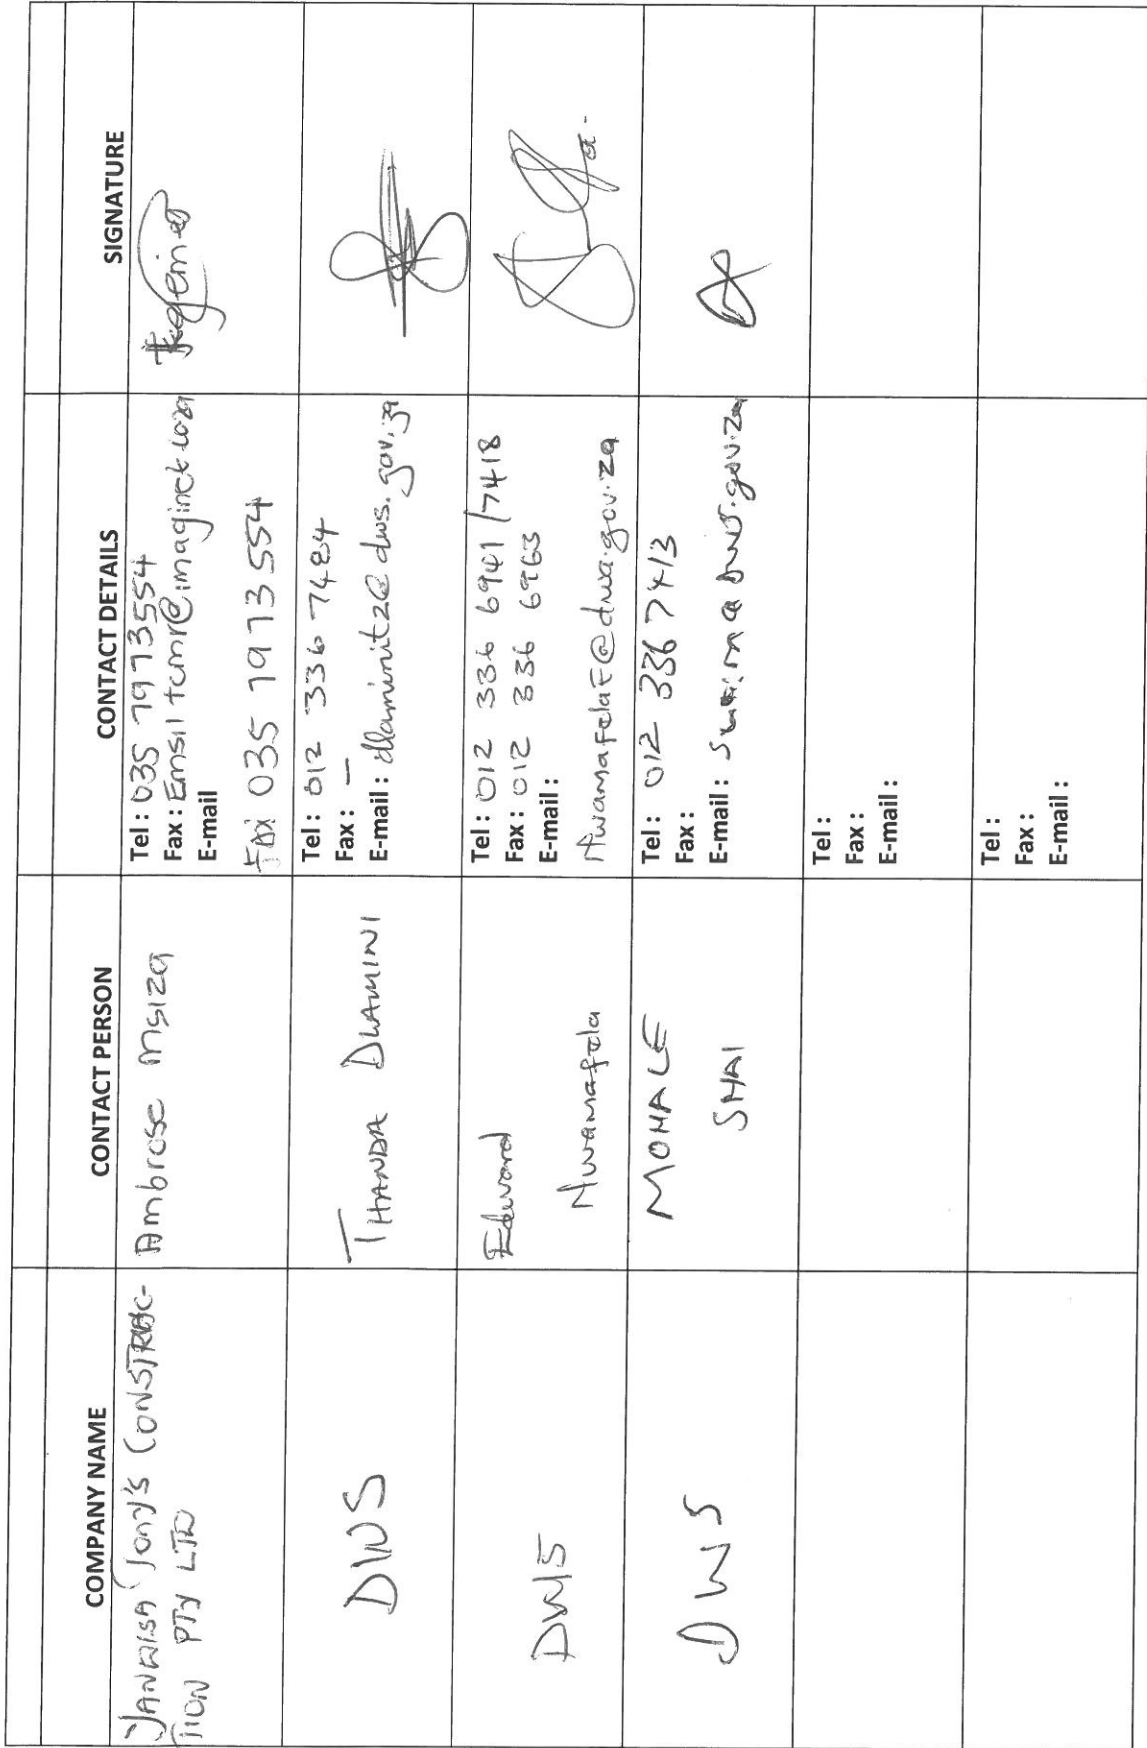 COMPANY NAME CONTACT PERSON CONTACT DETAILS SIGNATURE
PTY LTD
Ambrose Msiza
Tel : 035 7973554
Fax : Emsil tcmr@imaginet.co.za
E-mail
Fax 035 7973554
DWS
THANDA DLAMINI
Tel : 012 336 7484
Fax : —
E-mail : dlaminit2@dws.gov.za
DWS
Edward
Nwamafela
Tel : 012 336 6941 /7418
Fax : 012 336 6963
E-mail :
NwamafelaE@dwa.gov.za
DWS
MOHALE
SHAI
Tel : 012 336 7413
Fax :
E-mail :
Tel :
Fax :
E-mail :
Tel :
Fax :
E-mail :